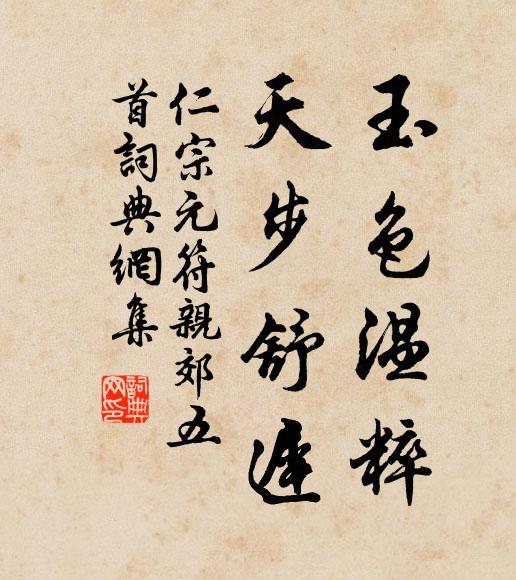 玉色溫粹
天步舒遲
仁宗元符親郊五
首詞典網集
詞典
网印